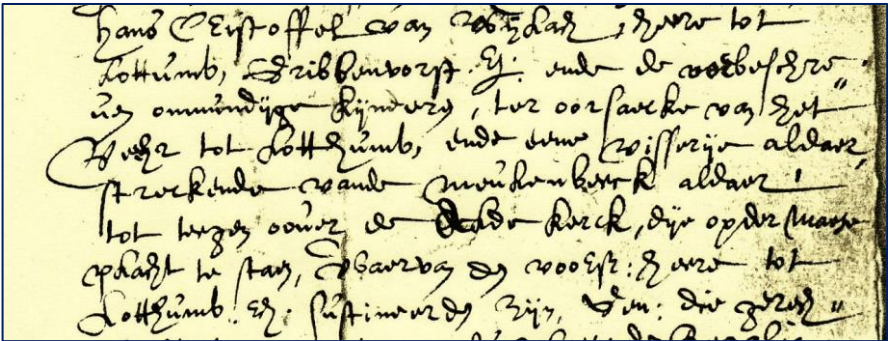 hans Cristoffel van Wijlach, heere tot
Lottumb, Gribbenvorst. Ec: ende de voerbeschre"
uen onmundijge kijnderen, ter oorsaecke van het
Vehr tot Lotthumb, ende eene visserije aldaer,
streckende vande Meulenbeeck aldaer
tot teegen oover de olde kerck, dije op der Maese
placht te staen, Waervan den voorsr: heere tot
Lotthumb. Ec: sustineerden zijn, den: die gerech"